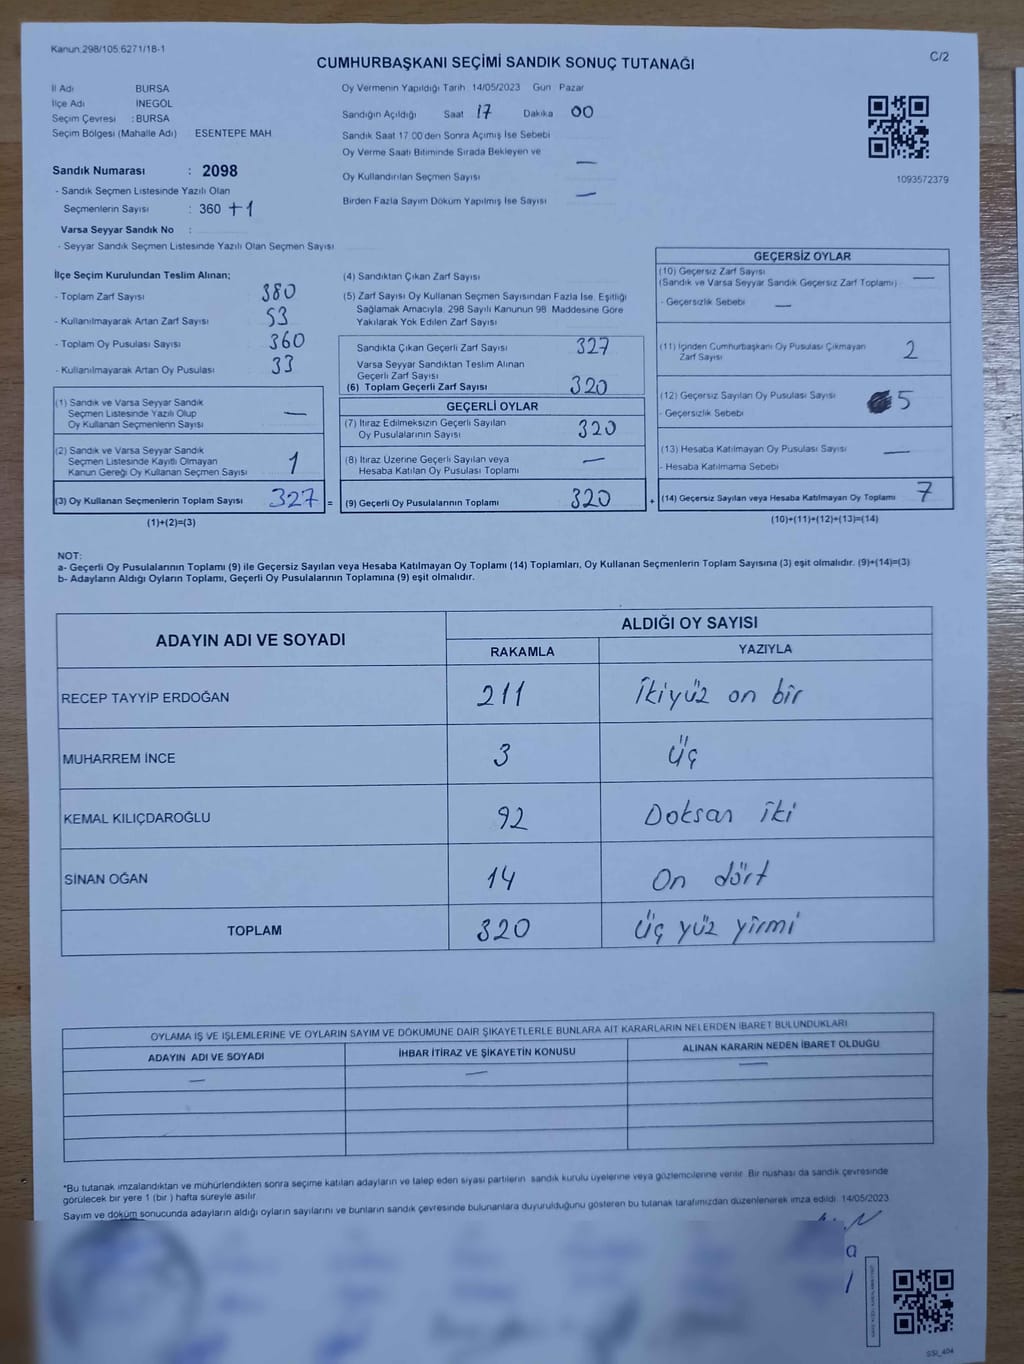 Kanun:298/105,6271/18-1
C/2
CUMHURBAŞKANI SEÇİMİ SANDIK SONUÇ TUTANAĞI
İl Adı BURSA
İlçe Adı İNEGÖL
Seçim Çevresi : BURSA
Seçim Bölgesi (Mahalle Adı) ESENTEPE MAH
Oy Vermenin Yapıldığı Tarih 14/05/2023 Gün Pazar
Sandığın Açıldığı Saat 17 Dakika 00
Sandık Saat 17 00'den Sonra Açımış İse Sebebi
Oy Verme Saati Bitiminde Sırada Bekleyen ve
Oy Kullandırılan Seçmen Sayısı —
Birden Fazla Sayım Döküm Yapılmış İse Sayısı —
1093572379
Sandık Numarası : 2098
- Sandık Seçmen Listesinde Yazılı Olan
Seçmenlerin Sayısı : 360 +1
Varsa Seyyar Sandık No :
- Seyyar Sandık Seçmen Listesinde Yazılı Olan Seçmen Sayısı
İlçe Seçim Kurulundan Teslim Alınan;
- Toplam Zarf Sayısı 380
- Kullanılmayarak Artan Zarf Sayısı 53
- Toplam Oy Pusulası Sayısı 360
- Kullanılmayarak Artan Oy Pusulası 33
(1) Sandık ve Varsa Seyyar Sandık
Seçmen Listesinde Yazılı Olup
Oy Kullanan Seçmenlerin Sayısı —
(2) Sandık ve Varsa Seyyar Sandık
Seçmen Listesinde Kayıtlı Olmayan
Kanun Gereği Oy Kullanan Seçmen Sayısı 1
(3) Oy Kullanan Seçmenlerin Toplam Sayısı 327 =
(1)+(2)=(3)
(4) Sandıktan Çıkan Zarf Sayısı
(5) Zarf Sayısı Oy Kullanan Seçmen Sayısından Fazla İse, Eşitliği
Sağlamak Amacıyla, 298 Sayılı Kanunun 98. Maddesine Göre
Yakılarak Yok Edilen Zarf Sayısı
Sandıkta Çıkan Geçerli Zarf Sayısı 327
Varsa Seyyar Sandıktan Teslim Alınan
Geçerli Zarf Sayısı
(6) Toplam Geçerli Zarf Sayısı 320
GEÇERLİ OYLAR
(7) İtiraz Edilmeksizin Geçerli Sayılan
Oy Pusulalarının Sayısı 320
(8) İtiraz Üzerine Geçerli Sayılan veya
Hesaba Katılan Oy Pusulası Toplamı —
(9) Geçerli Oy Pusulalarının Toplamı 320 +
GEÇERSİZ OYLAR
(10) Geçersiz Zarf Sayısı
(Sandık ve Varsa Seyyar Sandık Geçersiz Zarf Toplamı) —
- Geçersizlik Sebebi —
(11) İçinden Cumhurbaşkanı Oy Pusulası Çıkmayan
Zarf Sayısı 2
(12) Geçersiz Sayılan Oy Pusulası Sayısı 5
- Geçersizlik Sebebi
(13) Hesaba Katılmayan Oy Pusulası Sayısı —
- Hesaba Katılmama Sebebi
(14) Geçersiz Sayılan veya Hesaba Katılmayan Oy Toplamı 7
(10)+(11)+(12)+(13)=(14)
NOT:
a- Geçerli Oy Pusulalarının Toplamı (9) ile Geçersiz Sayılan veya Hesaba Katılmayan Oy Toplamı (14) Toplamları, Oy Kullanan Seçmenlerin Toplam Sayısına (3) eşit olmalıdır. (9)+(14)=(3)
b- Adayların Aldığı Oyların Toplamı, Geçerli Oy Pusulalarının Toplamına (9) eşit olmalıdır.
ADAYIN ADI VE SOYADI
ALDIĞI OY SAYISI
RAKAMLA YAZIYLA
RECEP TAYYİP ERDOĞAN 211 İkiyüz on bir
MUHARREM İNCE 3 Üç
KEMAL KILIÇDAROĞLU 92 Doksan iki
SİNAN OĞAN 14 On dört
TOPLAM 320 Üç yüz yirmi
OYLAMA İŞ VE İŞLEMLERİNE VE OYLARIN SAYIM VE DÖKÜMÜNE DAİR ŞİKAYETLERLE BUNLARA AİT KARARLARIN NELERDEN İBARET BULUNDUKLARI
ADAYIN ADI VE SOYADI İHBAR İTİRAZ VE ŞİKAYETİN KONUSU ALINAN KARARIN NEDEN İBARET OLDUĞU
— — —
*Bu tutanak imzalandıktan ve mühürlendikten sonra seçime katılan adayların ve talep eden siyasi partilerin sandık kurulu üyelerine veya gözlemcilerine verilir. Bir nüshası da sandık çevresinde
görülecek bir yere 1 (bir ) hafta süreyle asılır.
Sayım ve döküm sonucunda adayların aldığı oyların sayılarını ve bunların sandık çevresinde bulunanlara duyurulduğunu gösteren bu tutanak tarafımızdan düzenlenerek imza edildi. 14/05/2023
a
SSI_404